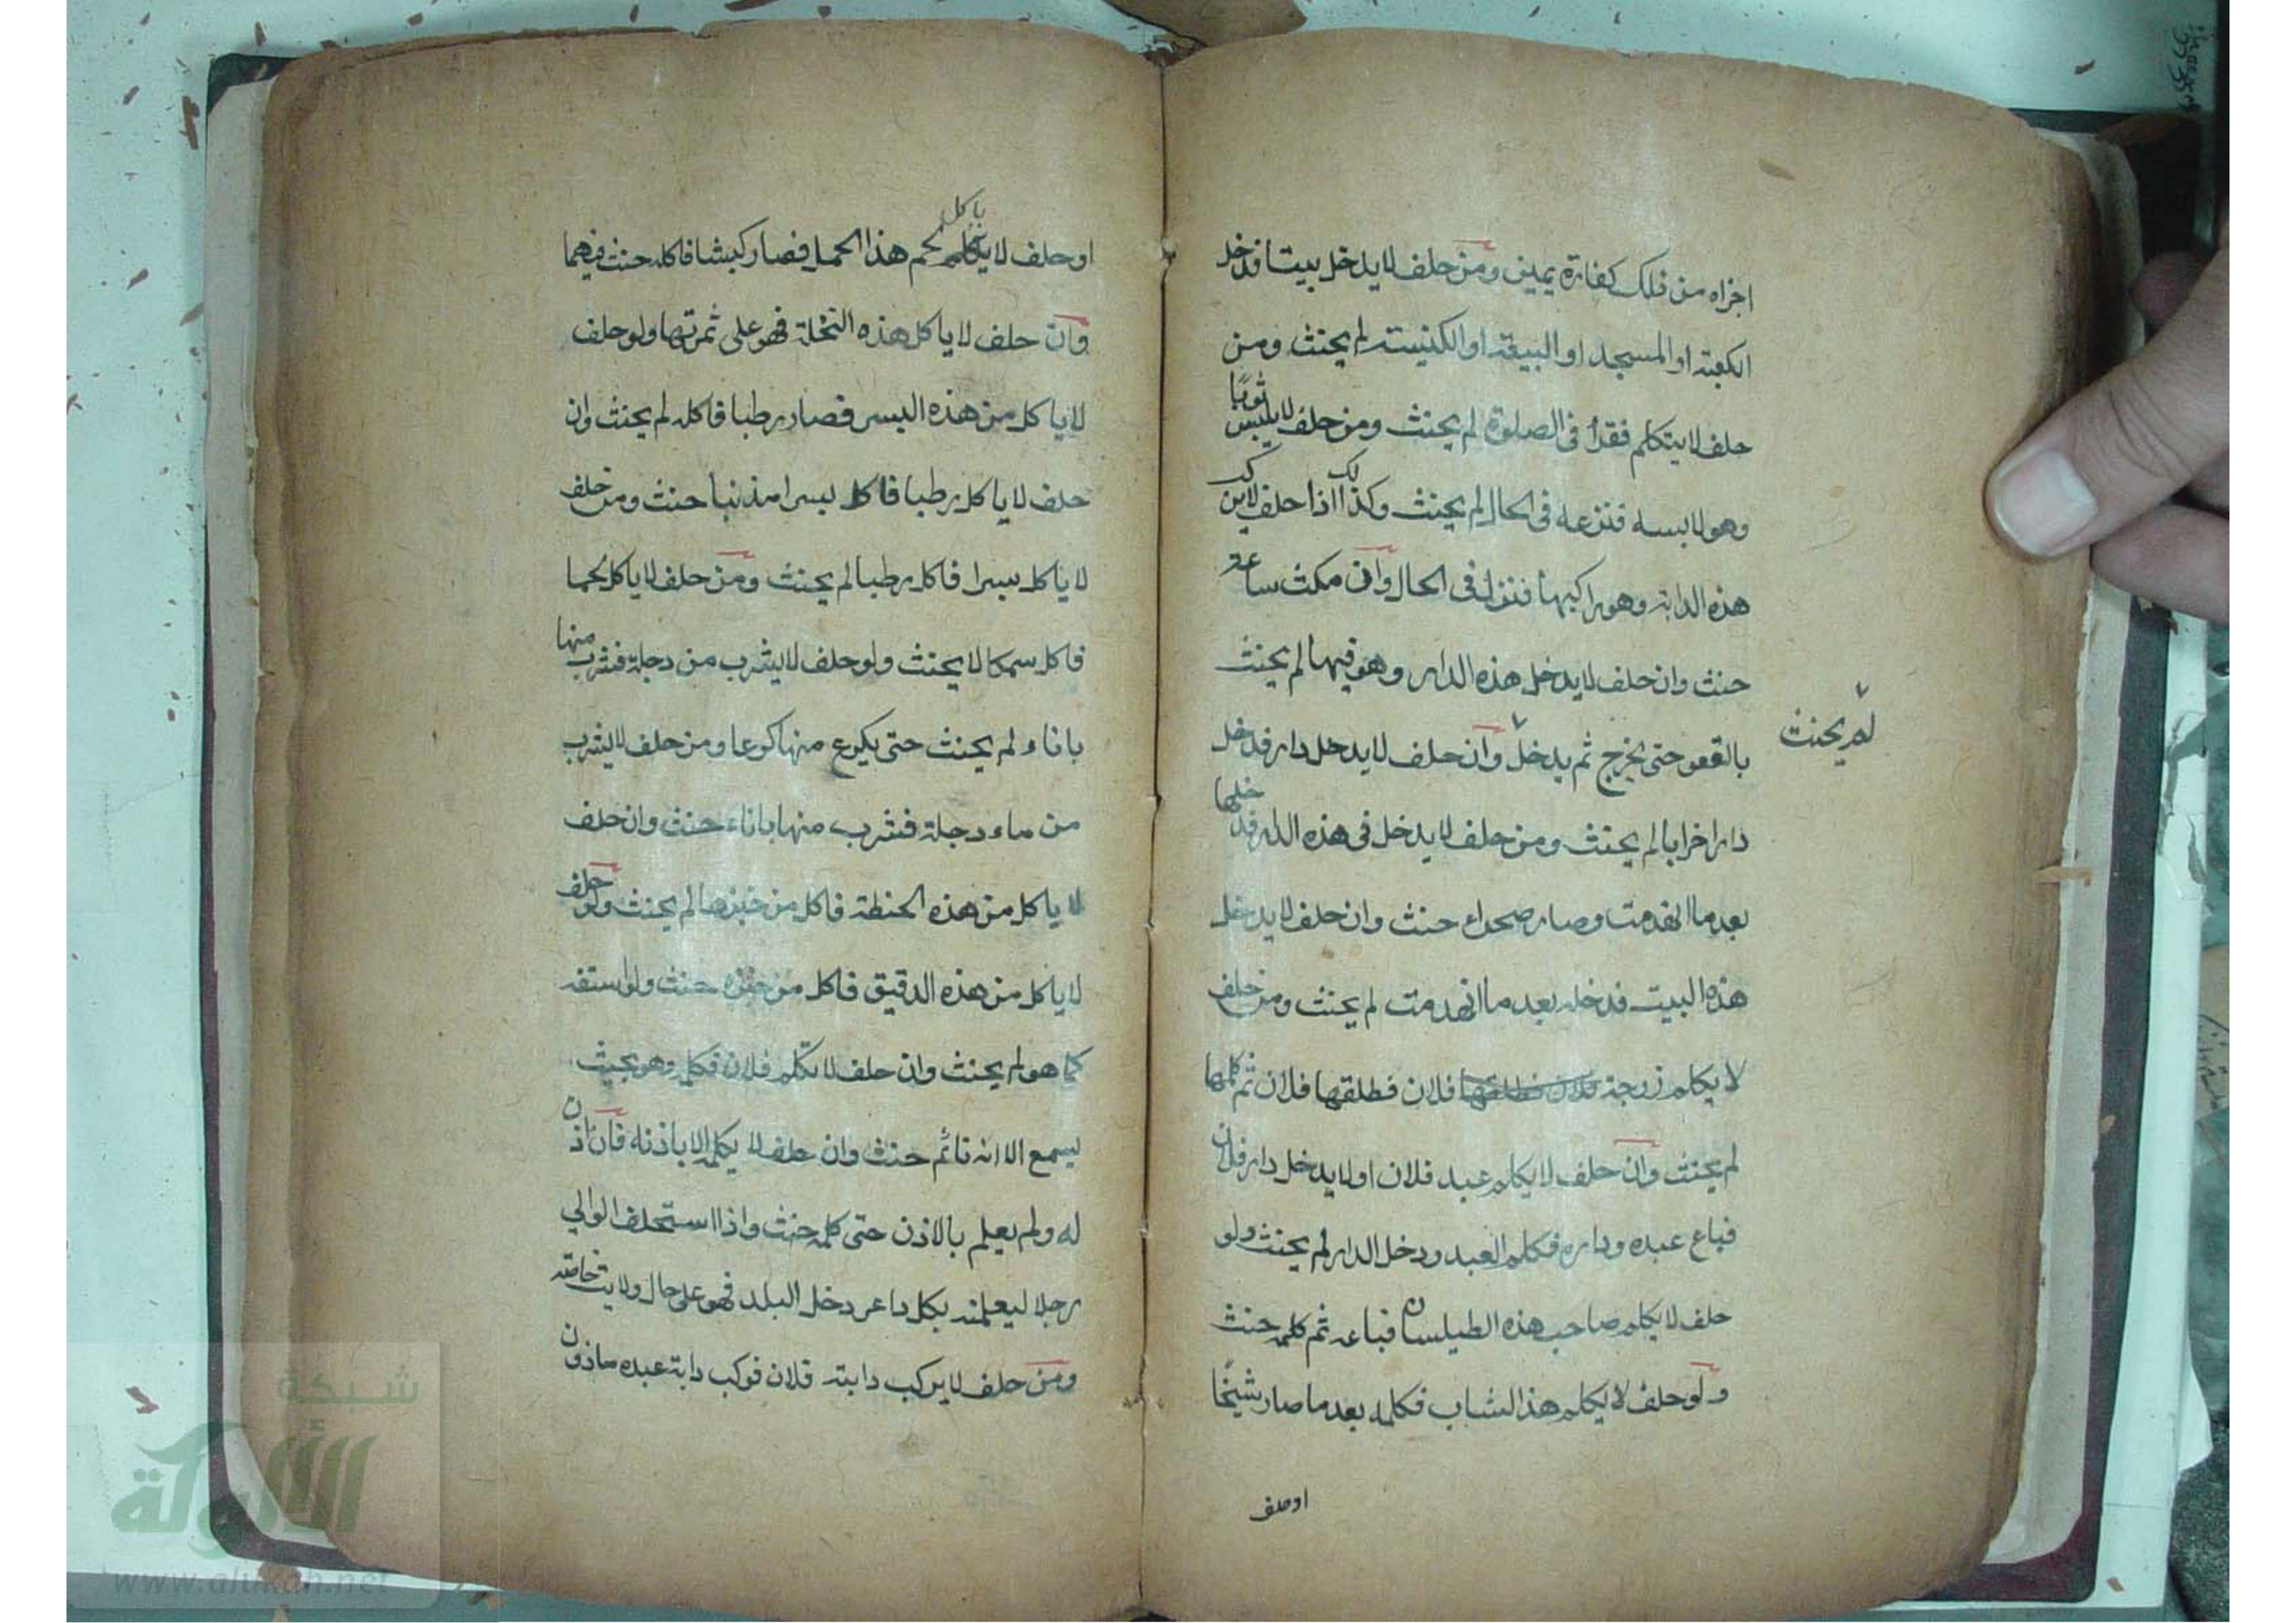 اجزاه من ذلك كفارة يمين ومن حلف لا يدخل بيتا فدخل
الكعبة او المسجد او البيعة او الكنيسة لم يحنث ومن
حلف لا يتكلم فقرأ في الصلوة لم يحنث ومن حلف لا يلبس ثوبًا
وهو لابسه فنزعه في الحال لم يحنث وكذلك اذا حلف لا يركب
هذه الدابة وهو راكبها فنزل في الحال وان مكث ساعة
حنث وان حلف لا يدخل هذه الدار وهو فيها لم يحنث
بالقعود حتى يخرج ثم يدخل وان حلف لا يدخل دار فدخل
لم يحنث
دارا خرابا لم يحنث ومن حلف لا يدخل في هذه الدار فدخلها
بعد ما انهدمت وصار صحراء حنث وان حلف لا يدخل
هذه البيت فدخله بعد ما انهدمت لم يحنث ومن حلف
لا يكلم زوجة فلان فطلقها فلان فطلقها فلان ثم كلمها
لم يحنث وان حلف لا يكلم عبد فلان او لا يدخل دار فلان
فباع عبده وداره فكلم العبد ودخل الدار لم يحنث ولو
حلف لا يكلم صاحب هذه الطيلسان فباعه ثم كلمه حنث
ولو حلف لا يكلم هذا الشاب فكلمه بعد ما صار شيخًا
او حلف
او حلف لا ياكل لحم هذا الحمل فصار كبشا فاكله حنث فيهما
وان حلف لا ياكل هذه النخلة فهو على ثمرتها ولو حلف
لا ياكل من هذه البسر فصار رطبا فاكله لم يحنث وان
حلف لا ياكل رطبا فاكل بسرا مذنبا حنث ومن حلف
لا ياكل بسرا فاكل رطبا لم يحنث ومن حلف لا ياكل لحما
فاكل سمكا لا يحنث ولو حلف لا يشرب من دجلة فشرب منها
باناء لم يحنث حتى يكرع منها كوعا ومن حلف لا يشرب
من ماء دجلة فشرب منها باناء حنث وان حلف
لا ياكل من هذه الحنطة فاكل من خبزها لم يحنث ولو حلف
لا ياكل من هذه الدقيق فاكل من خبزه حنث ولو استفه
كما هو لم يحنث وان حلف لا يكلم فلان فكلم وهو بحيث
يسمع الا انه نائم حنث وان حلف لا يكلمه الا باذنه فان اذن
له ولم يعلم بالاذن حتى كلمه حنث واذا استحلف الوالي
رجلا ليعلمنه بكل داعر دخل البلد فهو على حال ولايته خاصة
ومن حلف لا يركب دابة فلان فركب دابة عبده ماذون
شبكة
الألوكة
www.alukah.net